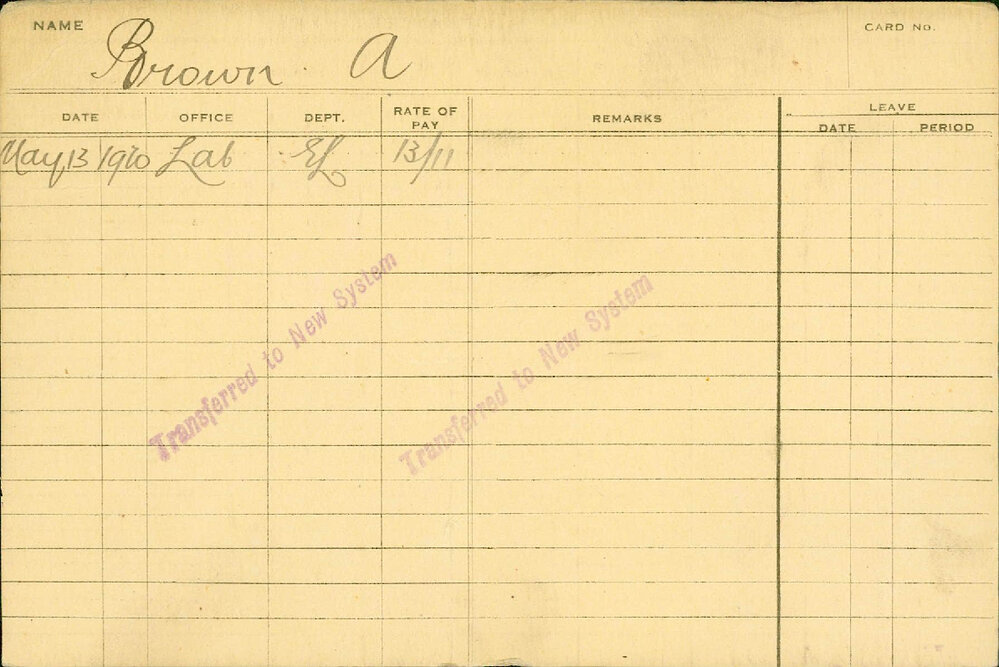 NAME Brown . A CARD No.
DATE OFFICE DEPT. RATE OF PAY REMARKS LEAVE
DATE PERIOD
May 13 1920 Lab EL 13/11
Transferred to New System
Transferred to New System